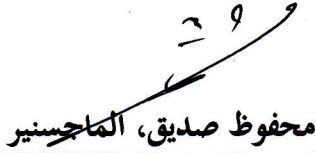 محفوظ صديق، الماجستير